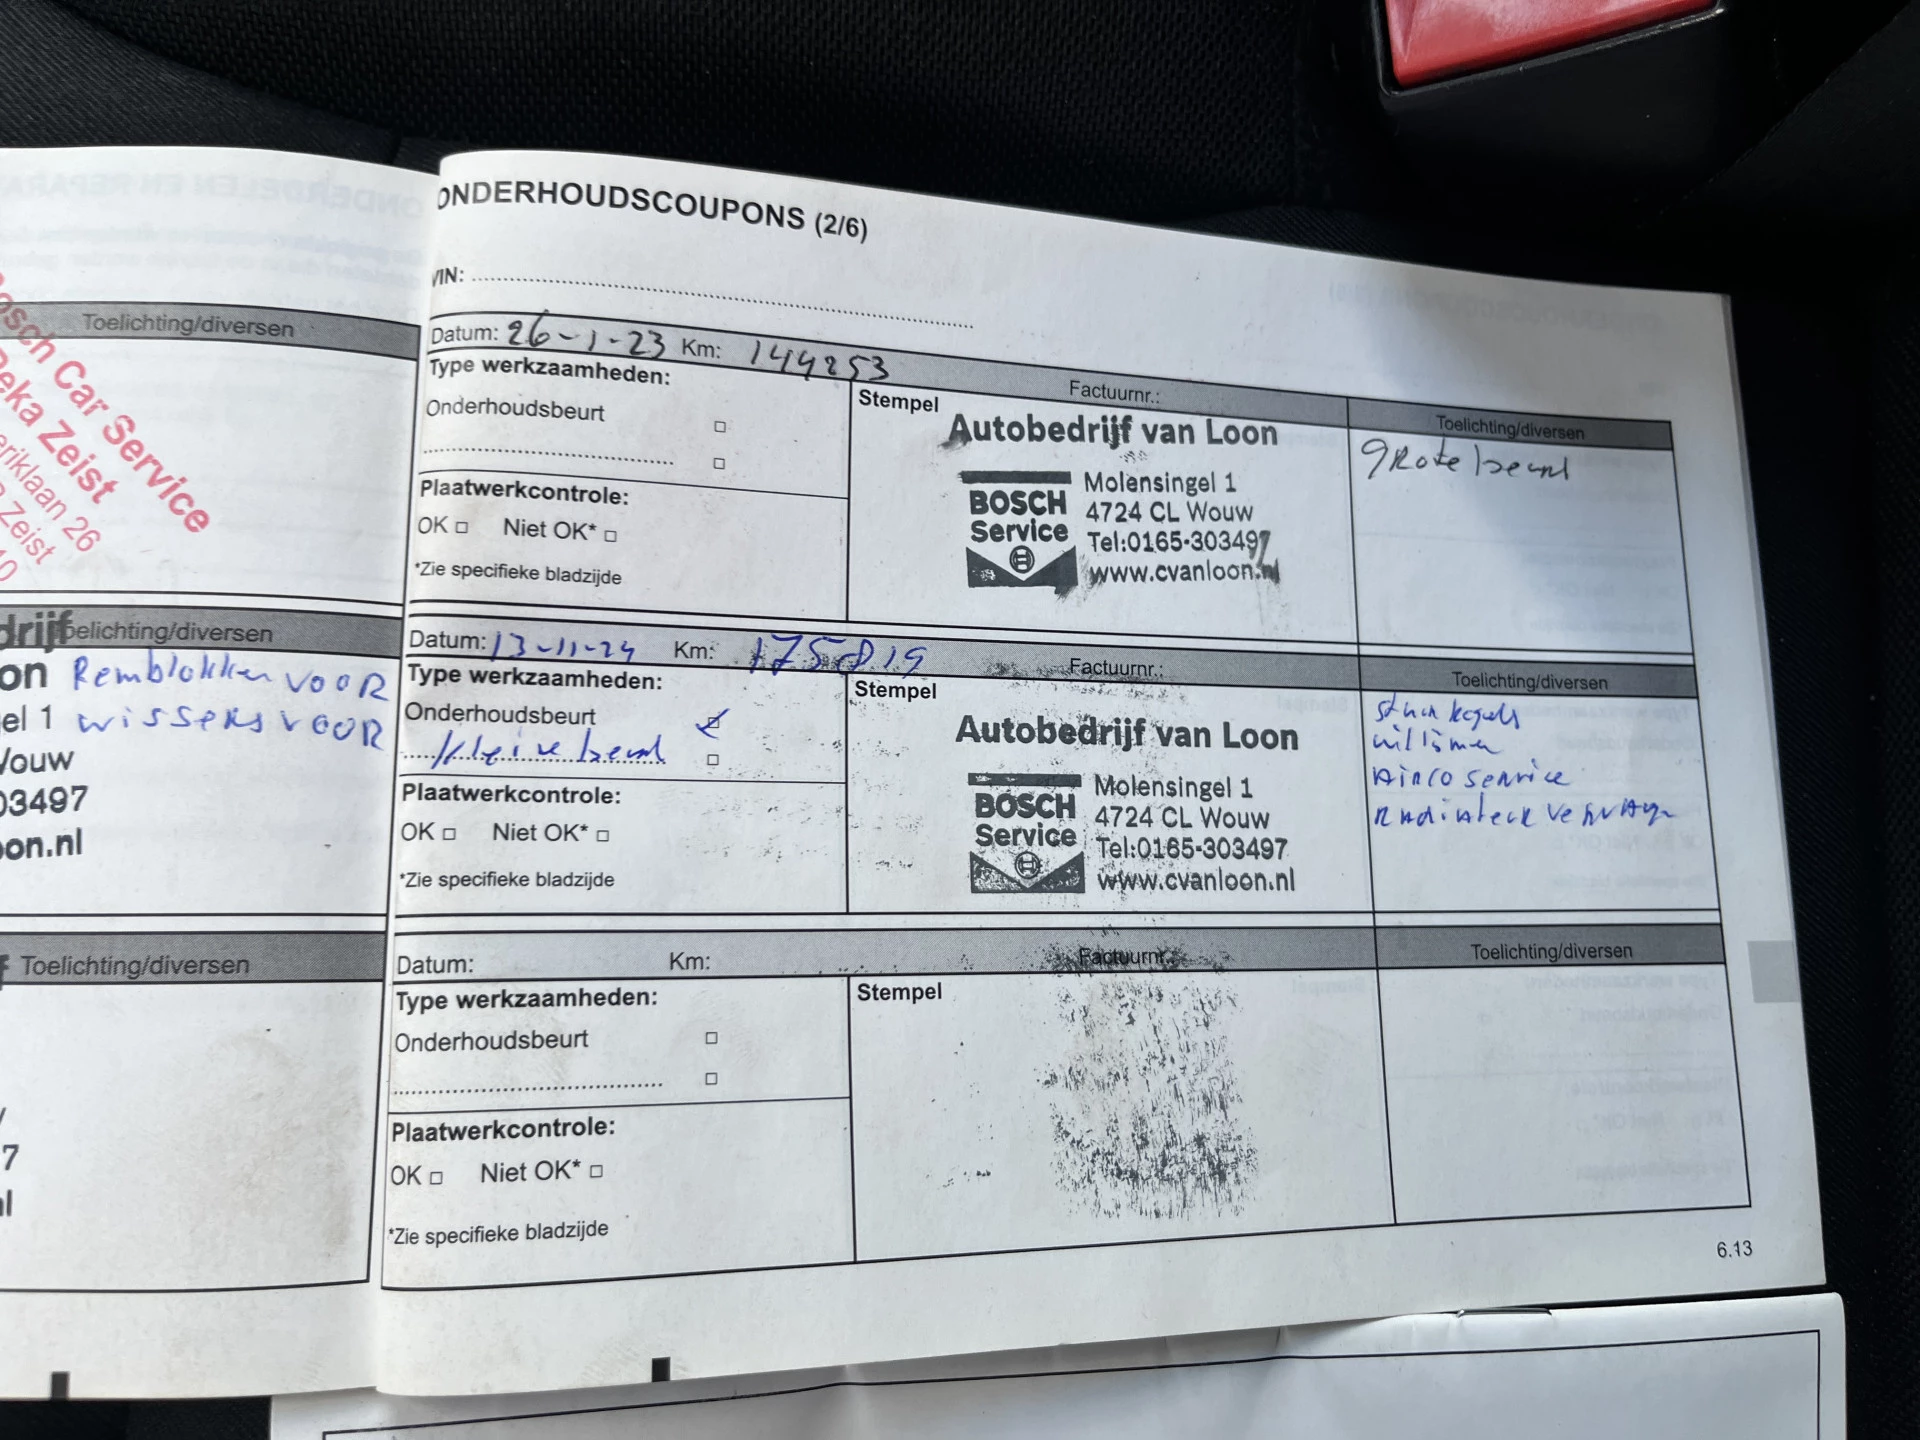 Toelichting/diversen
Bosch Car Service
Reka Zeist
eriklaan 26
Zeist
drijf
Toelichting/diversen
on Remblokken VOOR
el 1 wissers VOOR
Wouw
03497
on.nl
Toelichting/diversen
7
ONDERHOUDSCOUPONS (2/6)
VIN:
Datum: 26-1-23 Km: 144253 Factuurnr.:
Toelichting/diversen
Type werkzaamheden:
Onderhoudsbeurt
Plaatwerkcontrole:
OK Niet OK*
*Zie specifieke bladzijde
Stempel
Autobedrijf van Loon
BOSCH
Service
Molensingel 1
4724 CL Wouw
Tel:0165-303497
www.cvanloon.nl
grote beurt
Datum: 13-11-24 Km: 175819 Factuurnr.:
Toelichting/diversen
Type werkzaamheden:
Onderhoudsbeurt
kleine beurt
Plaatwerkcontrole:
OK Niet OK*
*Zie specifieke bladzijde
Stempel
Autobedrijf van Loon
BOSCH
Service
Molensingel 1
4724 CL Wouw
Tel:0165-303497
www.cvanloon.nl
stuurkogels
uitlijnen
Airco service
Datum: Km: Factuurnr.:
Toelichting/diversen
Type werkzaamheden:
Onderhoudsbeurt
Plaatwerkcontrole:
OK Niet OK*
*Zie specifieke bladzijde
Stempel
6.13